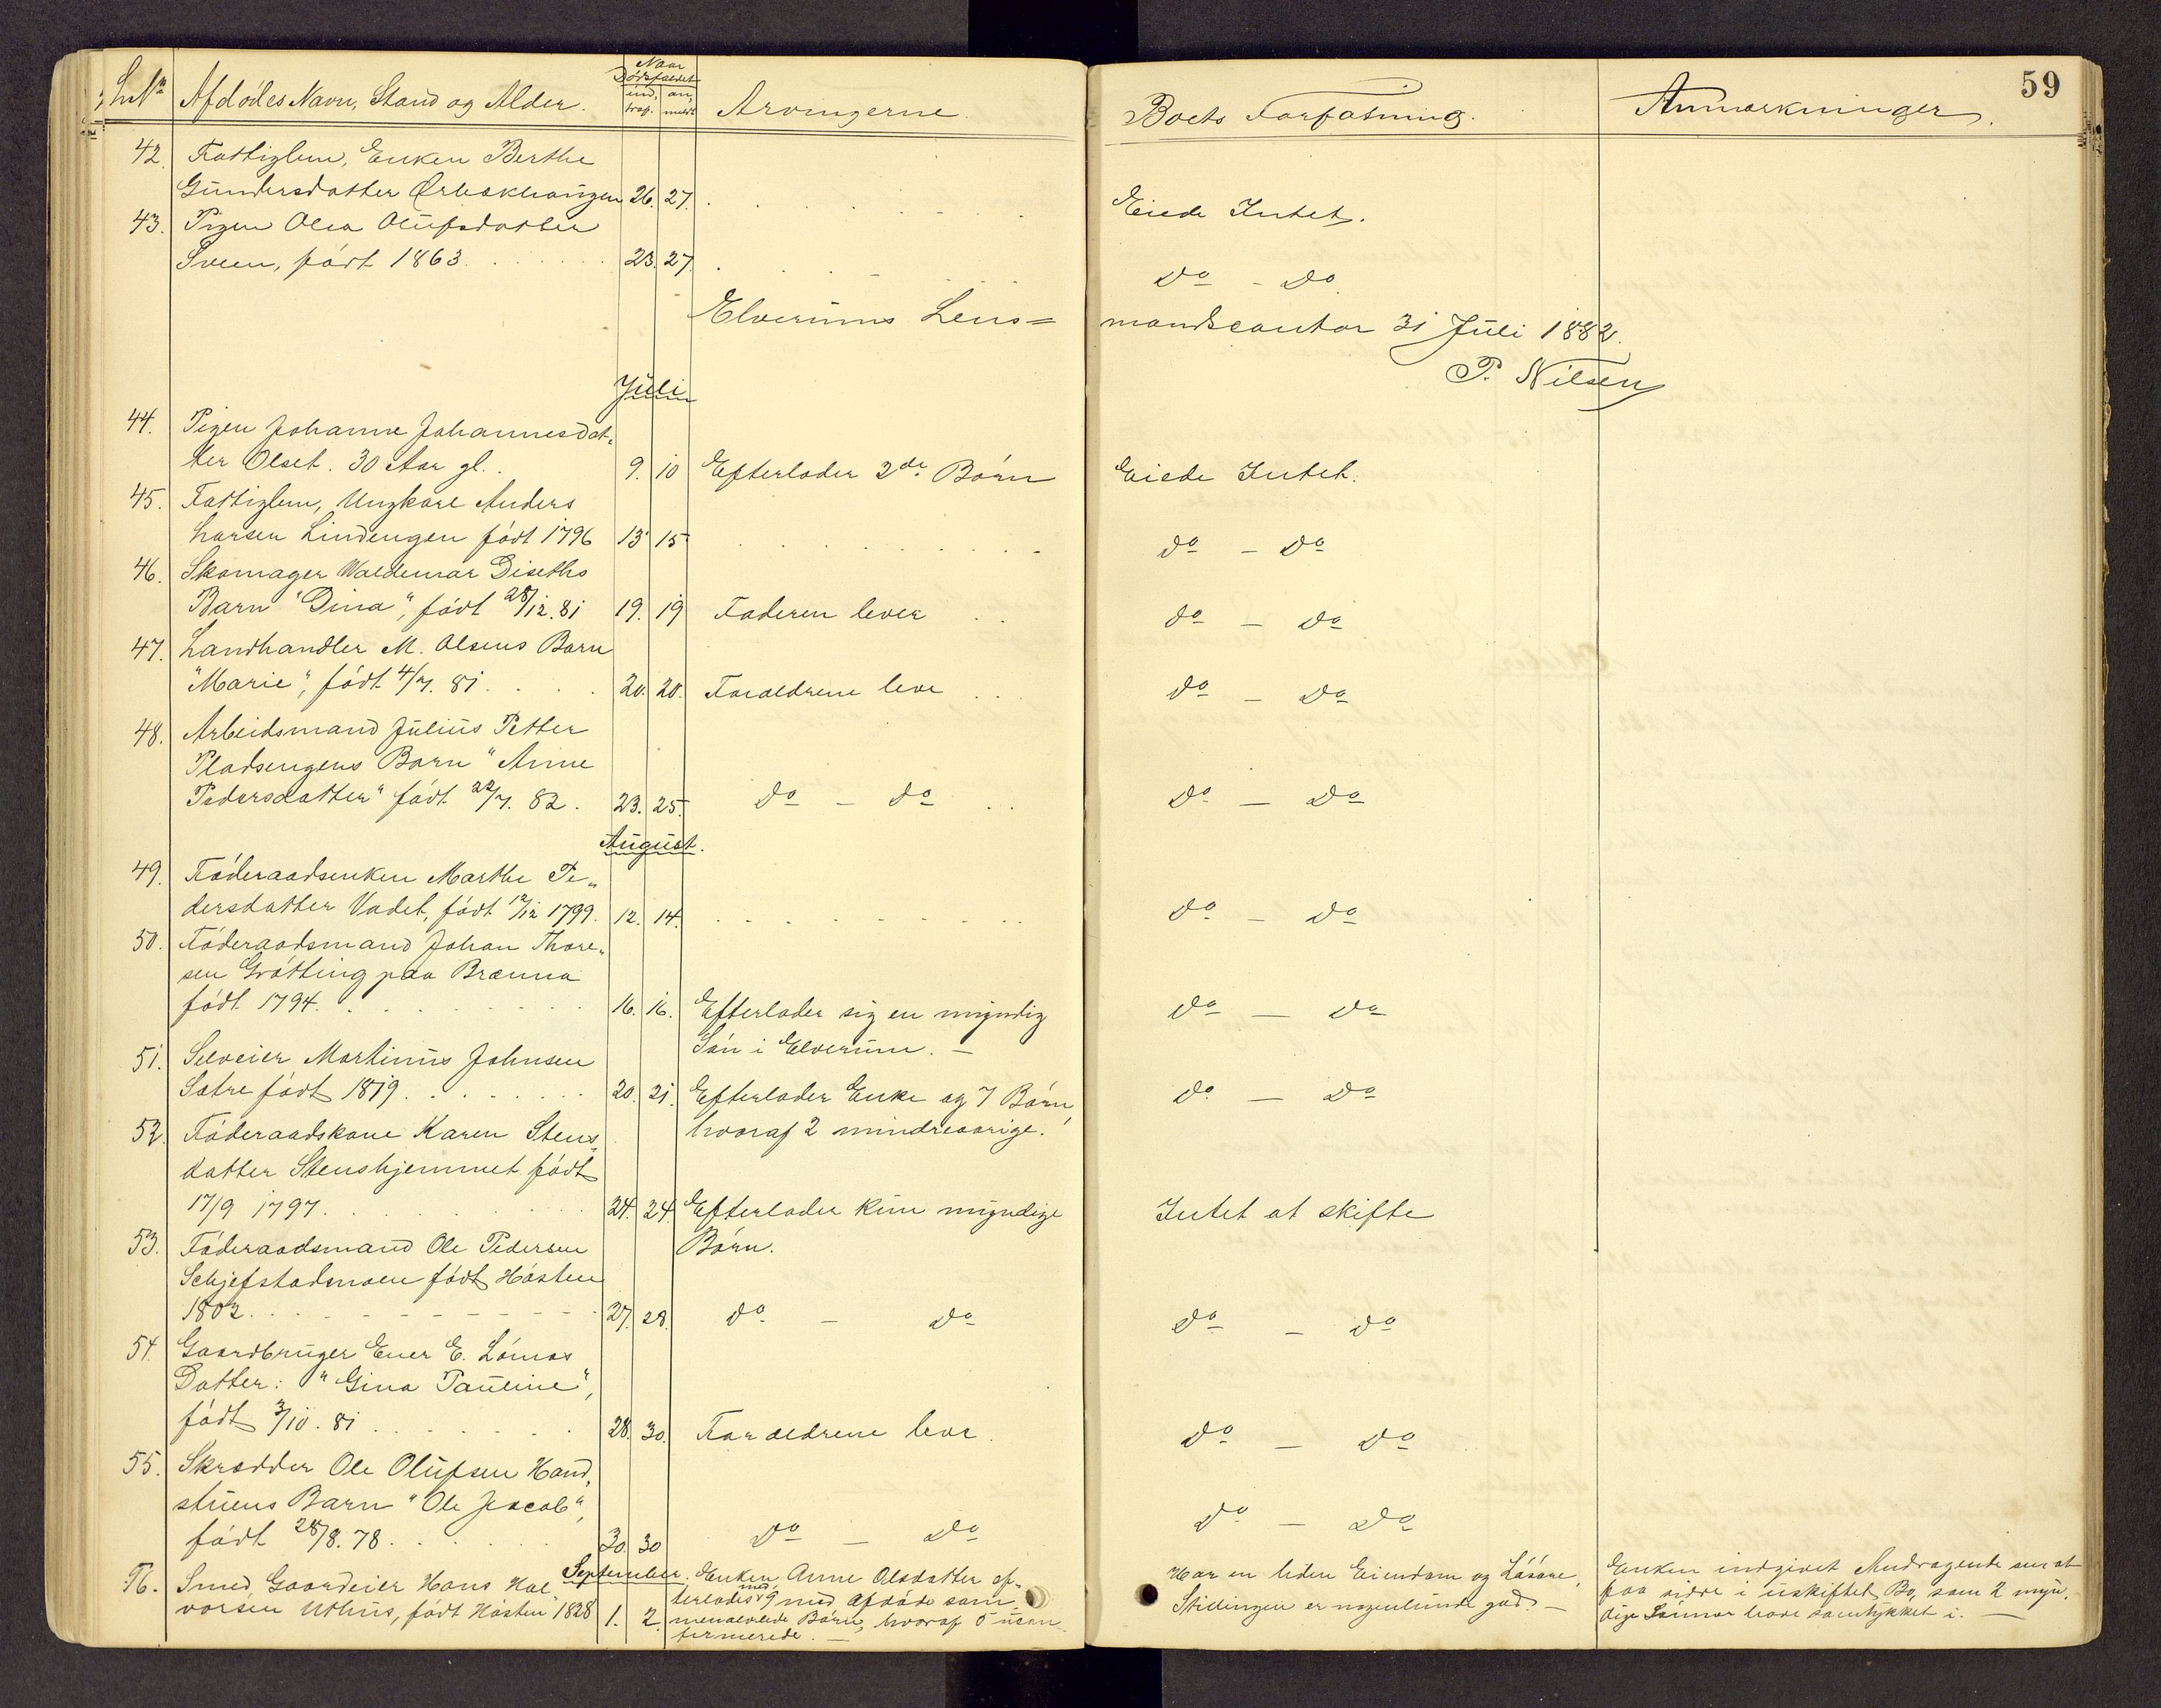 59
Lb. No Afdødes Navn, Stand og Alder. Naar Dødsfaldet indtraf. anmeldt Arvingerne. Boets Forfatning. Anmærkninger.
42. Fattiglem, Enken Berthe
Gundersdatter 26. 27. Eiede Intet.
43. Pigen Olea Olufsdatter
Sveen, født 1863. 23. 27. do - do
Elverums Lens=
mandscontor 31 Juli 1882.
P. Nilsen
Juli
44. Pigen Johanne Johannesdat-
ter Olset. 30 Aar gl. 9. 10 Efterlader 2de Børn Eiede Intet.
45. Fattiglem, Ungkarl Anders
Larsen Lindengen født 1796 13 15 do - do
46. Skomager Waldemar Diseths
Barn "Dina", født 28/12. 81 19. 19 Faderen lever do - do
47. Landhandler M. Olsens Barn
"Marie", født 4/7. 81 20. 20. Forældrene leve do - do
48. Arbeidsmand Julius Petter
Pladsengens Barn "Anne
Pedersdatter" født 22/7. 82. 23. 25. do - do do - do
August.
49. Føderaadsenken Marthe Pe-
dersdatter Vadet, født 12/12 1799. 12. 14. do - do
50. Føderaadsmand Johan Thore-
sen Grøtting paa Brænna
født 1794. 16. 16. Efterlader sig en myndig do - do
Søn i Elverum. -
51. Selveier Martinus Johnsen
Sætre født 1819. 20. 21. Efterlader Enke og 7 Børn, do - do
hvoraf 2 mindreaarige.
52. Føderaadskone Karen Stens-
datter Stenshjemmet født
17/9 1797. 24. 24. Efterlader kun myndige Intet at skifte
Børn.
53. Føderaadsmand Ole Pedersen
Schjefstadmoen født Høsten
1802. 27. 28. do - do do - do
54. Gaardbruger Ener E. Lømos
Datter: "Gina Pauline",
født 3/10. 81 28. 30. Forældrene leve. do - do
55. Skrædder Ole Olufsen Hand-
stuens Barn "Ole Jacob",
født 28/8. 78. 30. 30 do - do do - do
September.
56. Smed, Gaardeier Hans Hal-
vorsen Uthus, født Høsten 1828 1. 2.
Enken Anne Olsdatter ef-
terlades med 9 med Afdøde sam-
menavlede Børn, hvoraf 5 ucon-
firmerede. -
Har en liden Eiendom og Løsøre,
Stillingen er nogenlunde god. -
Enken indgivet Andragende om at
faa sidde i uskiftet Bo, som 2 myn-
dige Sønner have samtykket i. -